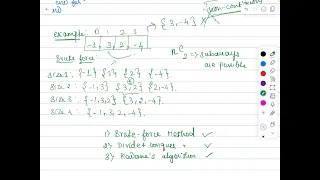 example 0 1 2 3
-1 3 2 -4
{3, -4} X
non-continuous
Brute force
nC2 => subarrays are possible
size 1: {-1} {3} {2} {-4}.
5
size 2: {-1, 3} {3, 2} {2, -4}.
size 3: {-1, 3, 2} {3, 2, -4}.
size 4: {-1, 3, 2, -4}.
1) Brute-force Method ✓
2) Divide + conquer ✓
3) Kadane's algorithm ✓